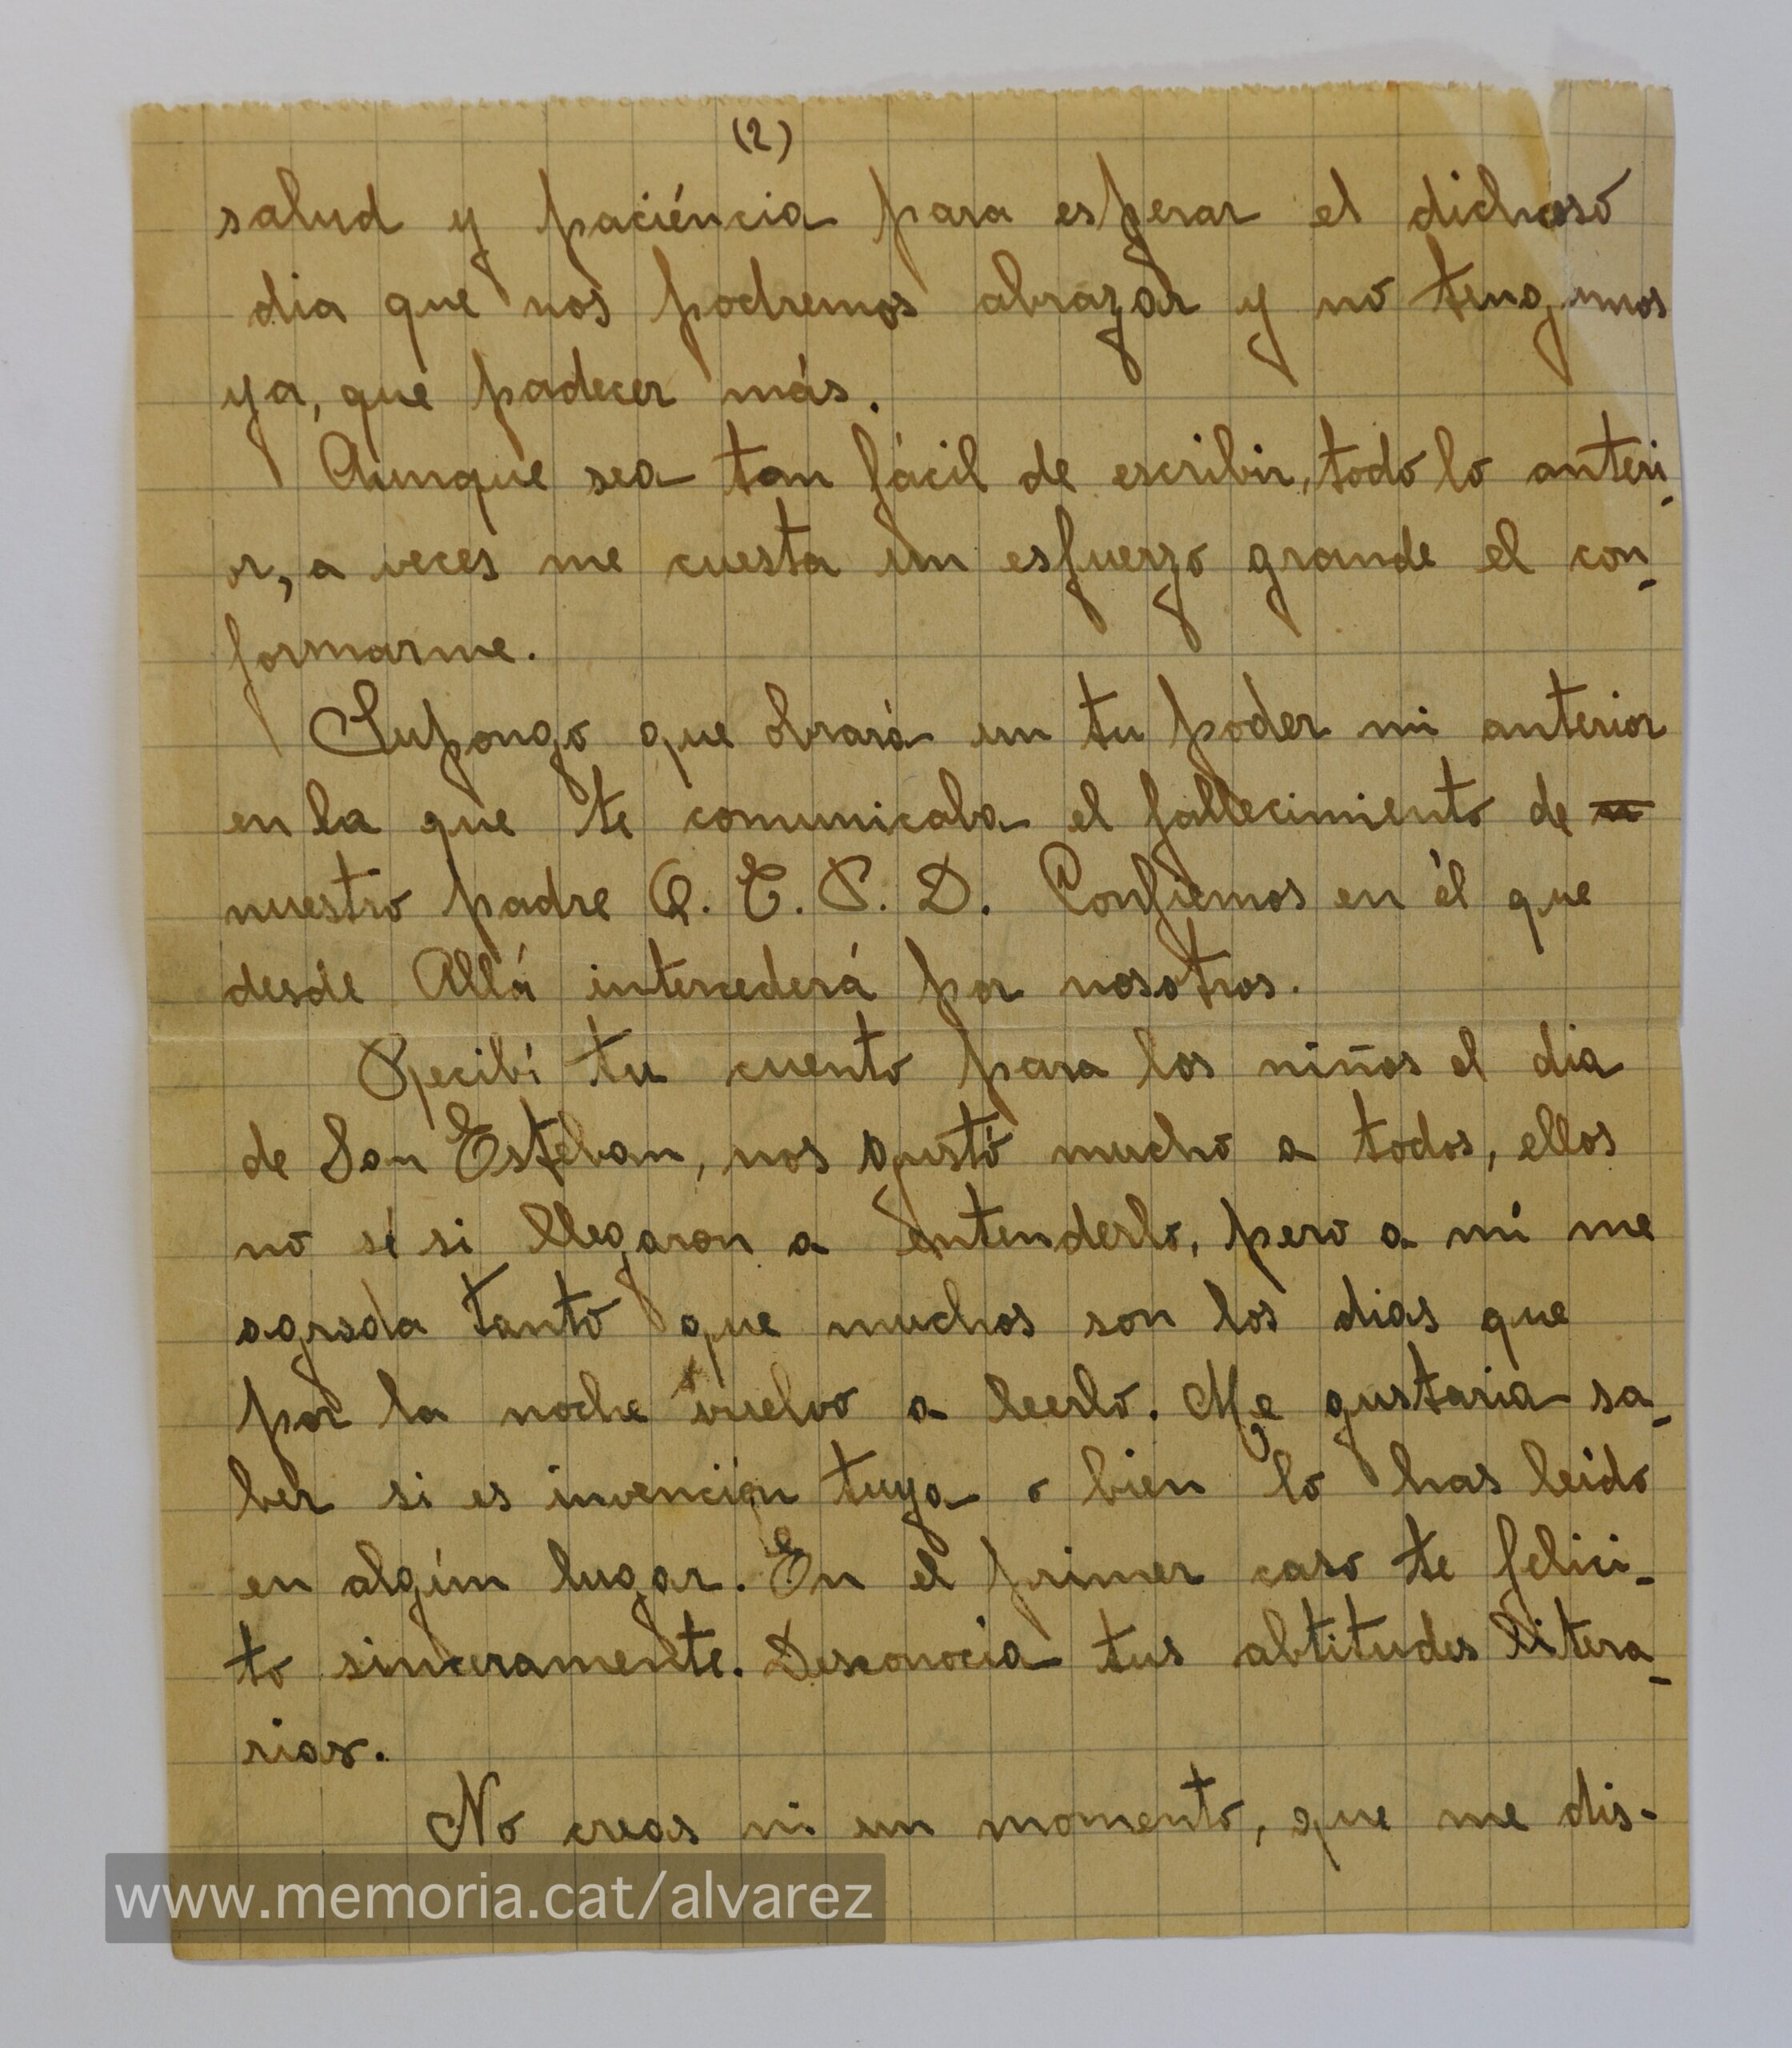 (2)
salud y paciéncia para esperar el dichoso
dia que nos podremos abrazar y no tengamos
ya, que padecer más.
Aunque sea tan fácil de escribir, todo lo anteri-
or, a veces me cuesta un esfuerzo grande el con-
formarme.
Supongo que obrará en tu poder mi anterior
en la que te comunicaba el fallecimiento de
nuestro padre Q. E. P. D. Confiemos en él que
desde Allá intercederá por nosotros.
Recibí tu cuento para los niños el dia
de San Esteban, nos gustó mucho a todos, ellos
no sé si llegaron a entenderlo, pero a mí me
agrada tanto que muchos son los dias que
por la noche vuelvo a leerlo. Me gustaria sa-
ber si es invención tuya o bien lo has leido
en algún lugar. En el primer caso te felici-
to sinceramente. Desconocia tus abtitudes litera-
rias.
No creas ni un momento, que me dis-
www.memoria.cat/alvarez